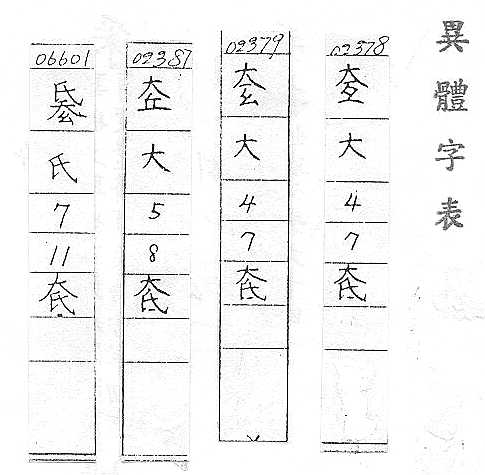 異體字表
02378
大
4
7
奃
02379
大
4
7
奃
02387
大
5
8
奃
06601
氏
7
11
奃